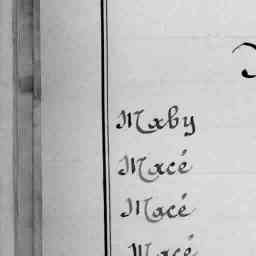 Maby
Macé
Macé
Macé